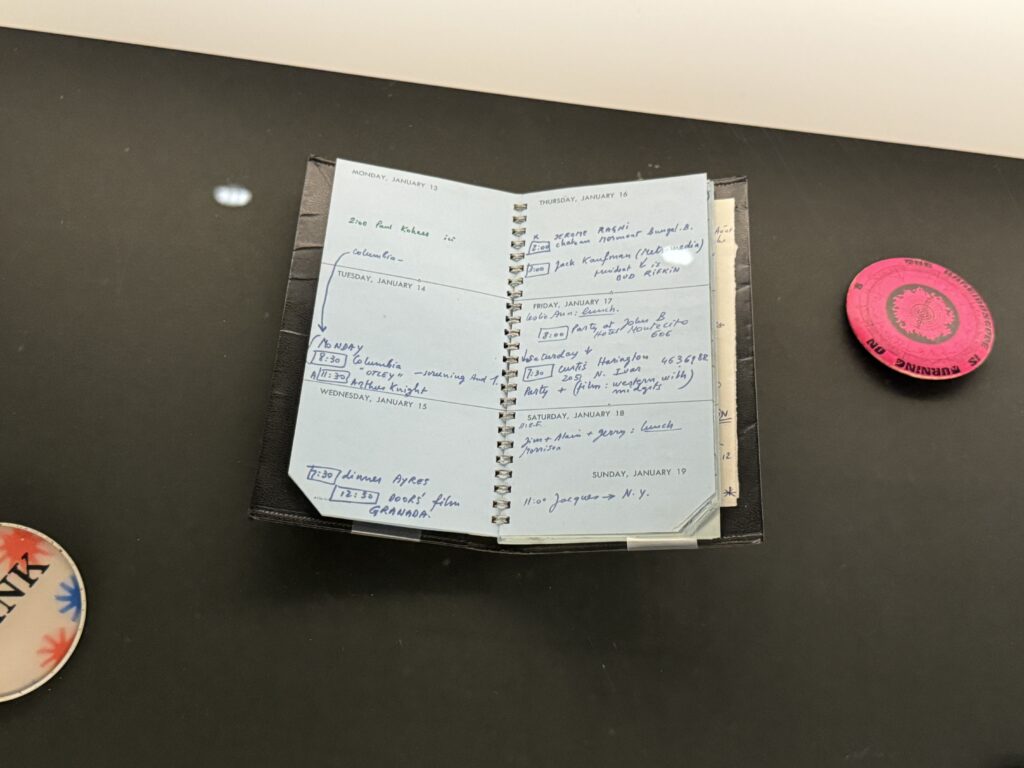 MONDAY, JANUARY 13
2:00 Paul ici
Columbia
TUESDAY, JANUARY 14
MONDAY
8:30 Columbia
"OTLEY" – screening Aud 1
11:30 Arthur Knight
WEDNESDAY, JANUARY 15
7:30 dinner AYRES
12:30 DOORS' film
GRANADA.
THURSDAY, JANUARY 16
x JEROME RAGNI
8:00 chateau Marmont Bungal. B.
7:00 Jack Kaufman (Metromedia)
president
BUD RIFKIN
FRIDAY, JANUARY 17
Leslie Ann: lunch.
8:00 Party at John B
Hotel Montecito
606
Saturday
7:30 Curtis Harington
N. Ivar
Party + (film: western with)
midgets
SATURDAY, JANUARY 18
Jim + Alain + Jerry: lunch
Morrison
SUNDAY, JANUARY 19
11:00 Jacques → N.Y.
THE UNDERGROUND IS TURNING ON
INK